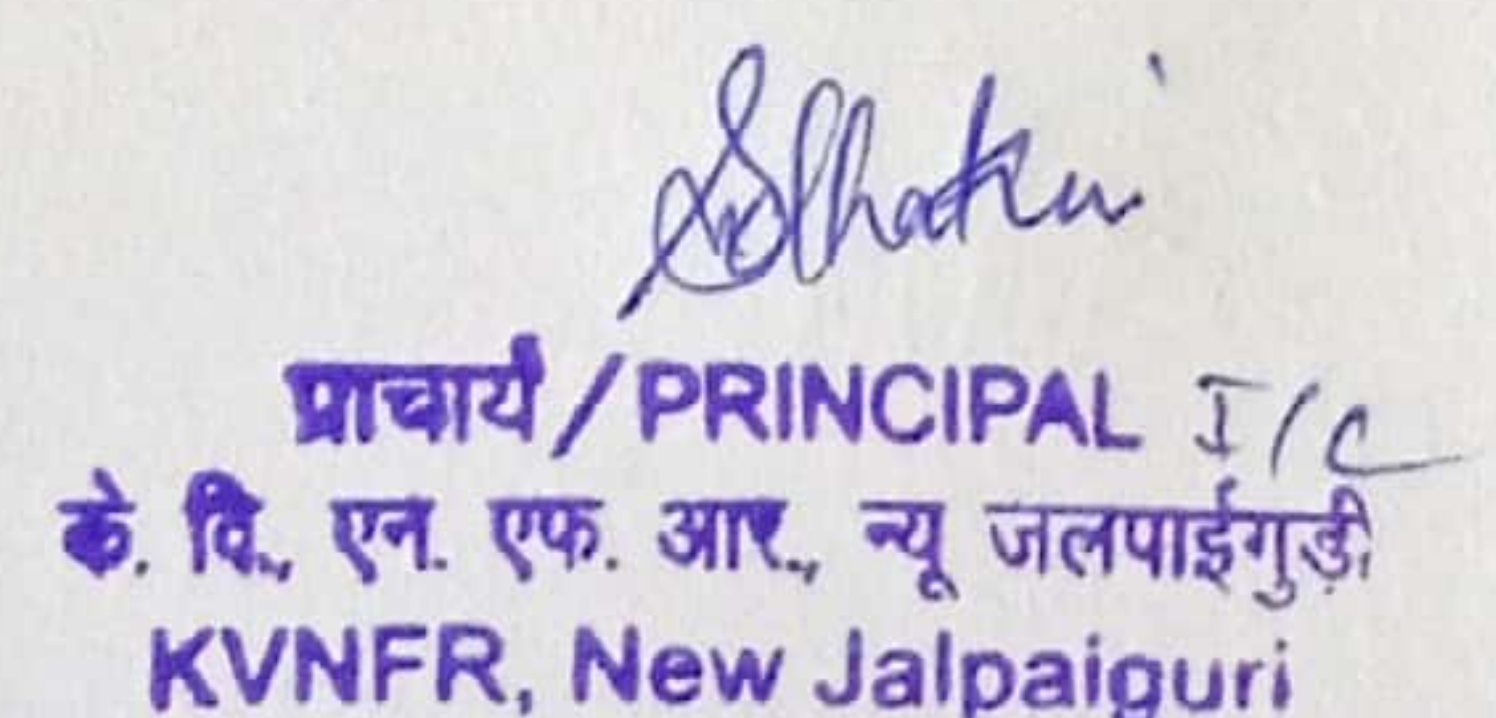 प्राचार्य / PRINCIPAL I/C
के. वि., एन. एफ. आर., न्यू जलपाईगुड़ी
KVNFR, New Jalpaiguri